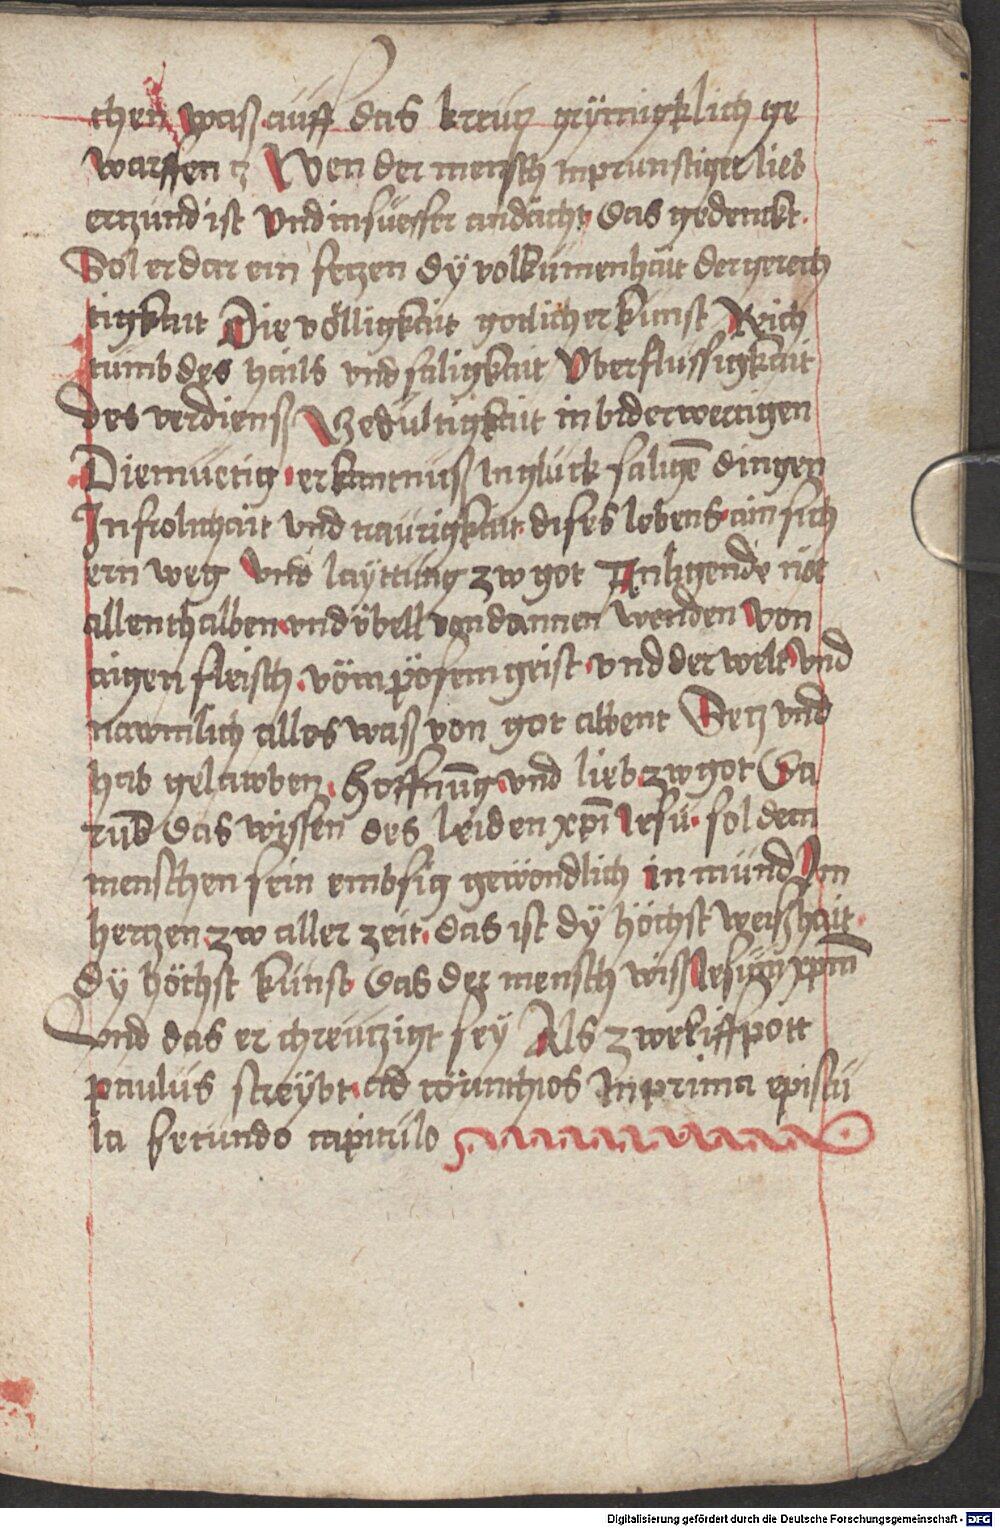 chen waß auff das kreuͦcz grymigklich ge
warffen ꝛc Wen der mensch inprunstiger lieb
erczund ist Vnd in suesser andacht Das gedenckt
Sol er dar ein seczen dÿ volkumenhait der gerech
tigkait Die völligkait gotlicher kunst Reich
tumb des hails vnd saligkait Vberflussigkait
des verdienß Gedultigkait in widerwertigen
Diemuetig erkantnuß In gluck saligē dingen
In frolichait vnd traurigkait dises lebens ain sich
ern weg vnd layttung zw got Anligende not
allenthalben vnd übell von dannen wenden von
aigen fleisch vom pösem geist vnd der welt Vnd
nawmlich alles waß von got abbent Secz vnd
hab gelawben Hoffnūg vnd lieb zw got Da
rub das wissen des leiden xp̄i Iesu sol dem
menschen sein embsig gewondlich in mund Im
herczen zw aller zeit das ist dÿ höchst weißhait
dy höchst kunst Das der mensch wiß Iesum xpm̄
Vnd das er chreuczigt sey Als zwelifpott
paulus screybt ad corinthios In prima epistu
la secundo capitulo
Digitalisierung gefördert durch die Deutsche Forschungsgemeinschaft - DFG